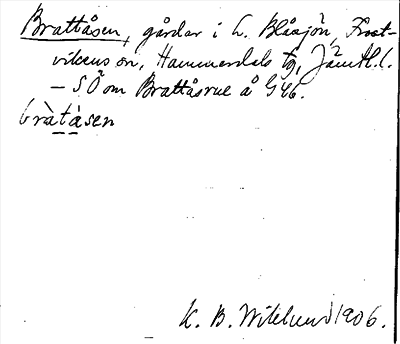 Brattåsen, gårdar i L. Blåsjön, Frost-
vikens sn, Hammerdals tg, Jämtl. l.
– SÖ om Brattåsrue å G46.
bràtàsen
K. B. Wiklund 1906.